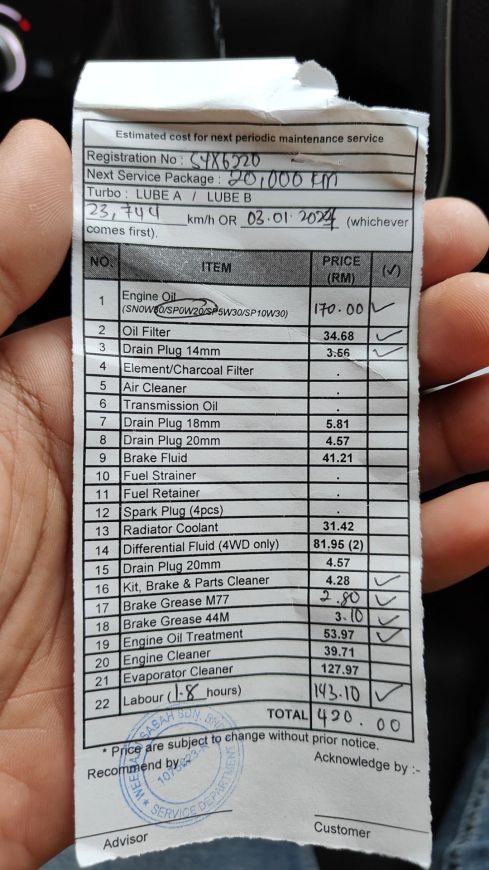 Estimated cost for next periodic maintenance service
Registration No : SYX6220
Next Service Package : 20,000 KM
Turbo : LUBE A / LUBE B
23,744 km/h OR 03.01.2024 (whichever
comes first).
NO. ITEM PRICE (RM) (✓)
1 Engine Oil 170.00 ✓
(SN0W30/SP0W20/SP5W30/SP10W30)
2 Oil Filter 34.68 ✓
3 Drain Plug 14mm 3.56 ✓
4 Element/Charcoal Filter .
5 Air Cleaner .
6 Transmission Oil .
7 Drain Plug 18mm 5.81
8 Drain Plug 20mm 4.57
9 Brake Fluid 41.21
10 Fuel Strainer .
11 Fuel Retainer .
12 Spark Plug (4pcs) .
13 Radiator Coolant 31.42
14 Differential Fluid (4WD only) 81.95 (2)
15 Drain Plug 20mm 4.57
16 Kit, Brake & Parts Cleaner 4.28 ✓
17 Brake Grease M77 2.80 ✓
18 Brake Grease 44M 3.10 ✓
19 Engine Oil Treatment 53.97 ✓
20 Engine Cleaner 39.71
21 Evaporator Cleaner 127.97
22 Labour (1.8 hours) 143.10 ✓
TOTAL 420.00
* Price are subject to change without prior notice.
Recommend by Acknowledge by :-
SABAH SDN. BHD.
SERVICE DEPARTMENT
Advisor Customer